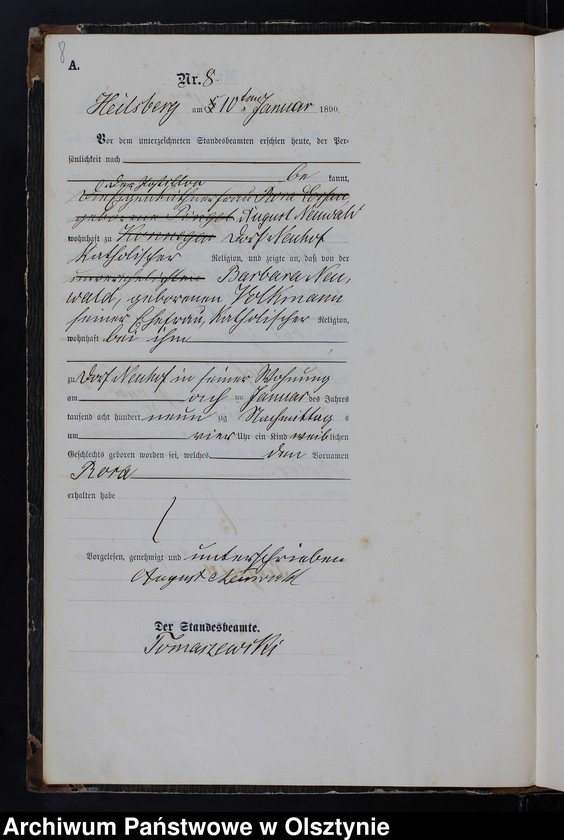 8
A.
Nr. 8.
Heilsberg am 10ten Januar 1890.
Vor dem unterzeichneten Standesbeamten erschien heute, der Per-
sönlichkeit nach
be kannt,
der
August Neuwald
wohnhaft zu Dorf Neuhof
katholischer Religion, und zeigte an, daß von der
unverehelichten Barbara Neu,
wald, geborenen Volkmann
seiner Ehefrau, katholischer Religion,
wohnhaft bei ihm
zu Dorf Neuhof in seiner Wohnung
am acht im Januar des Jahres
tausend acht hundert neun zig Nachmittag s
um vier Uhr ein Kind weib lichen
Geschlechts geboren worden sei, welches den Vornamen
Rosa
erhalten habe
Vorgelesen, genehmigt und unterschrieben
August Neuwald
Der Standesbeamte.
Tomaszewski
Archiwum Państwowe w Olsztynie